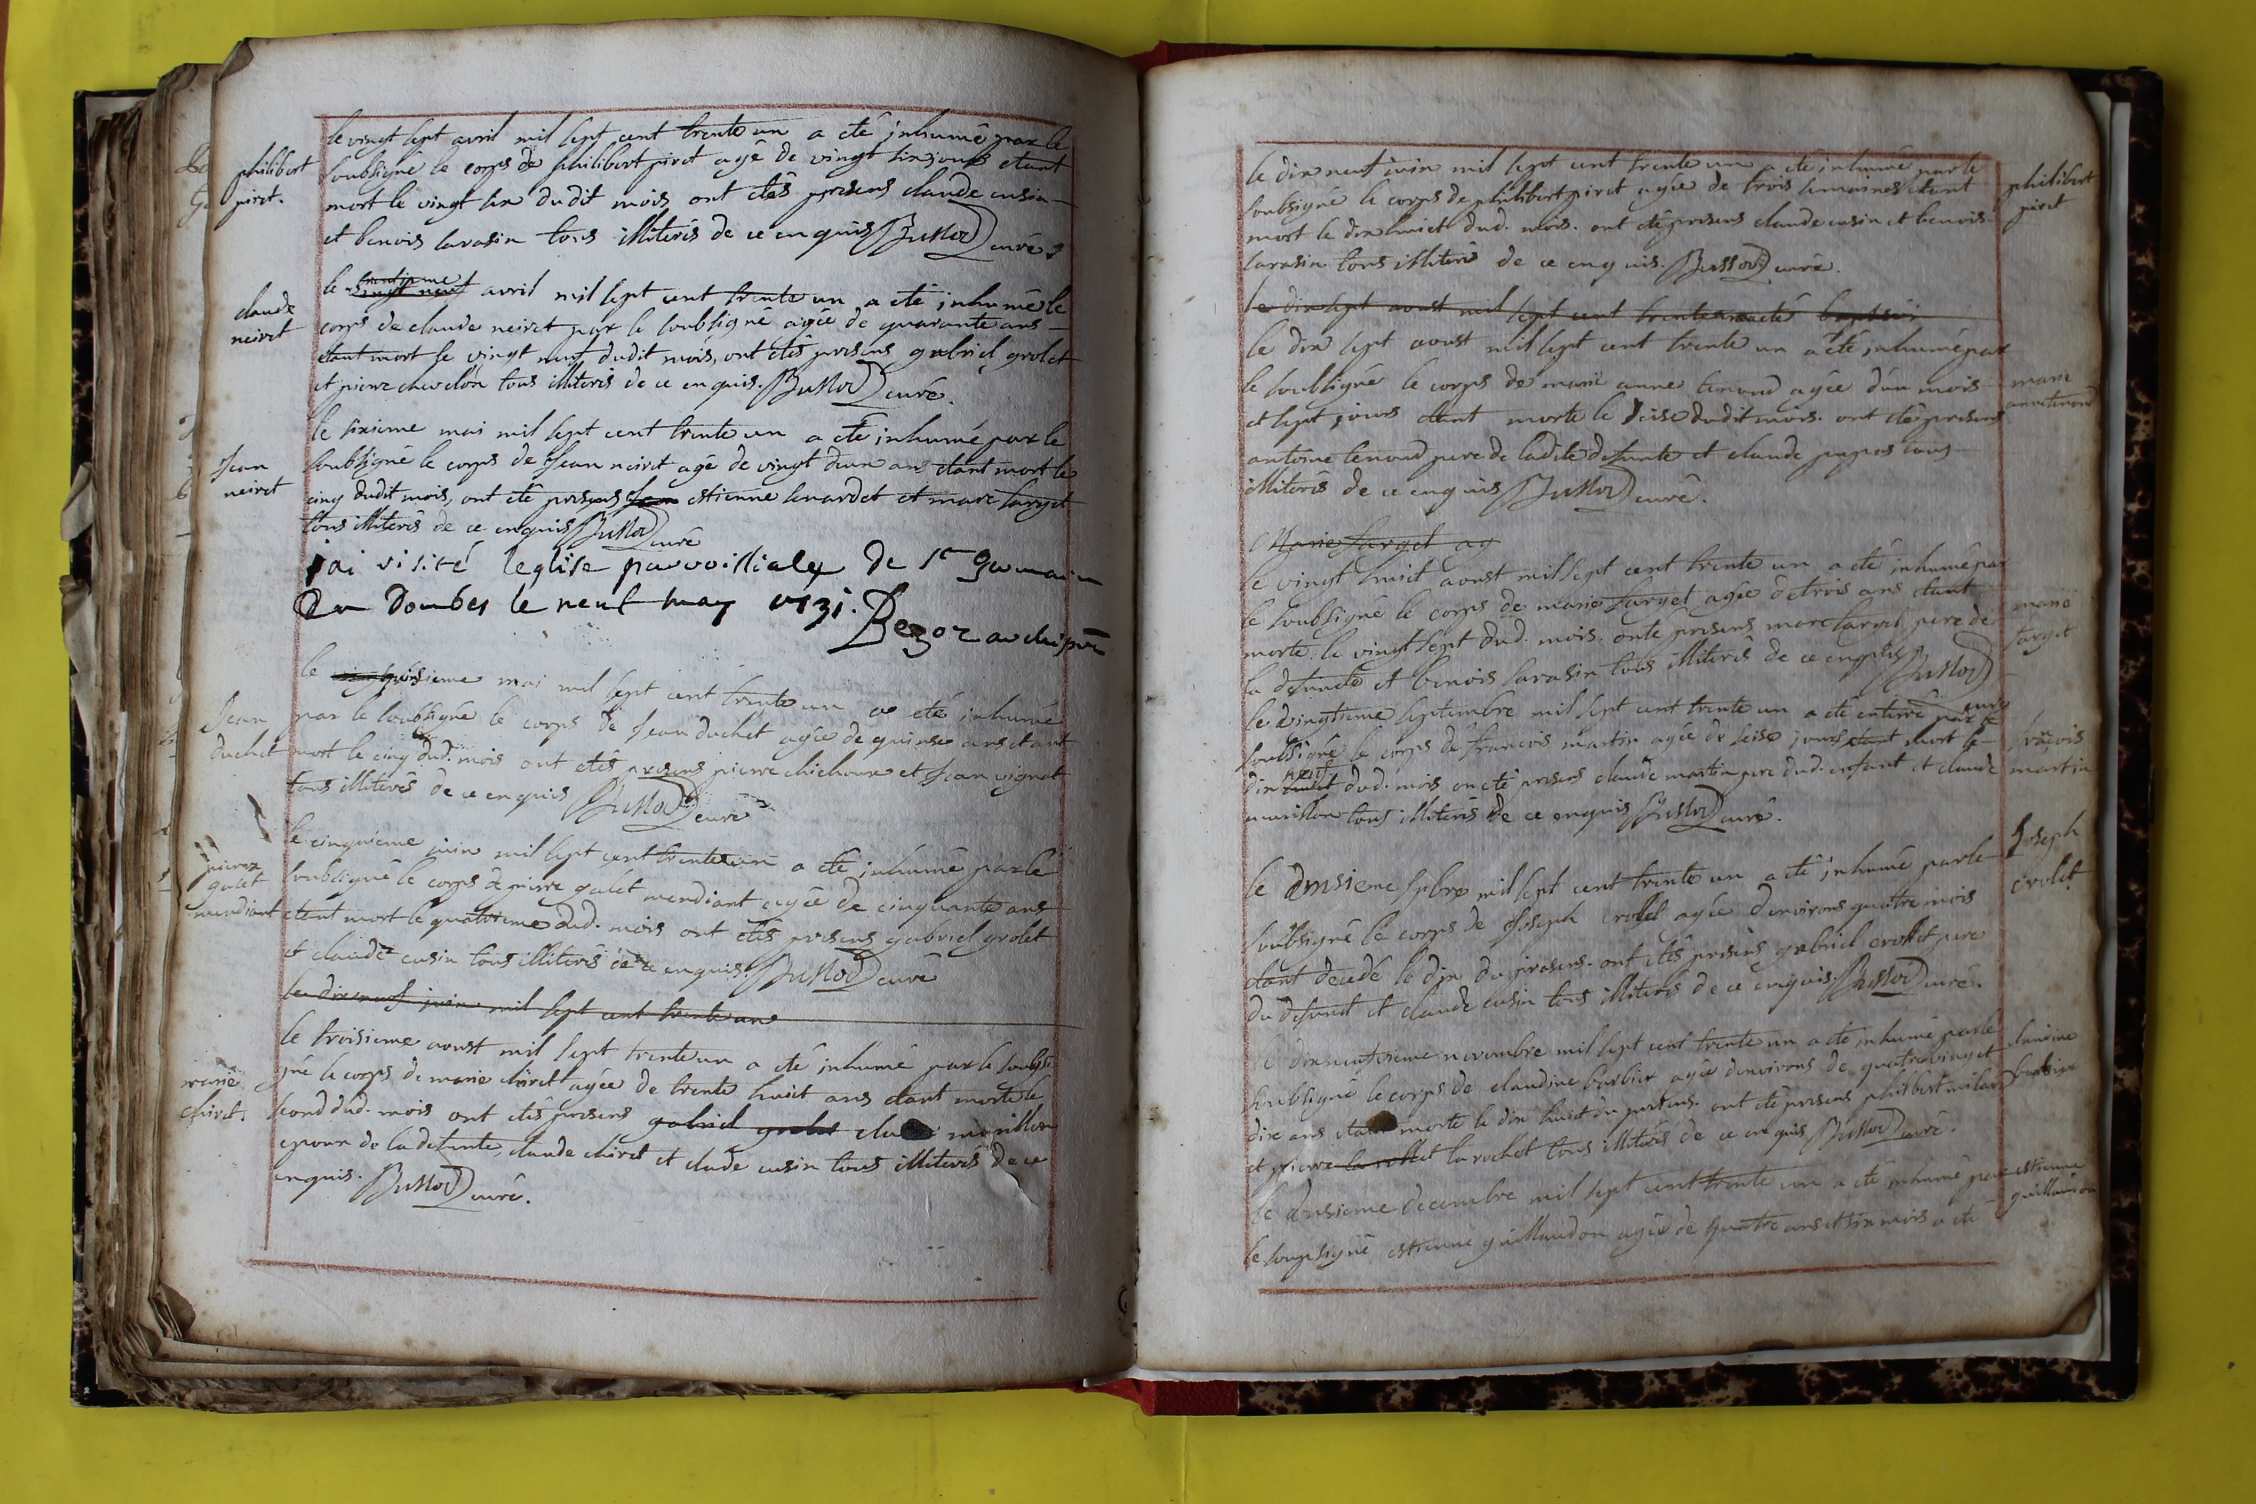 philibert
piret.
le vingt sept avril mil sept cent trente un a eté inhumé par le
soubsigné le corps de philibert piret agé de vingt six jours etant
mort le vingt six dudit mois ont etés presens claude cusin
et benois sarasin tous illiterés de ce enquis curé
claude
neiret
le avril mil sept cent trente un a eté inhumé le
corps de claude neiret par le soubsigné agée de quarante ans
etant mort le vingt neuf dudit mois, ont etés presens gabriel grolet
et pierre tous illiterés de ce enquis. curé.
Jean
neiret
le sixieme mai mil sept cent trente un a eté inhumé par le
soubsigné le corps de Jean neiret agé de vingt deux ans etant mort le
cinq dudit mois, ont eté presens estienne et marc sarget
tous illiterés de ce enquis curé
jai visité leglise parroissiale de St Germain
En Dombes le neuf may 1731. archipre
Jean
duchet
le mai mil sept cent trente un a eté inhumé
par le soubsigné le corps de Jean duchet agée de quinse ans etant
mort le cinq dud. mois ont etés presens pierre et Jean vignat
tous illiterés de ce enquis curé
pierre
galet
mendiant
le cinquieme juin mil sept cent trente un a eté inhumé par le
soubsigné le corps de pierre galet mendiant agée de cinquante ans
etant mort le quatrieme dud. mois ont etés presens gabriel grolet
et claude cusin tous illiterés de ce enquis. curé
le dix neuf juin mil sept cent trente un
marie
chiret.
le troisieme aoust mil sept trente un a eté inhumé par le soubsi
gné le corps de marie chiret agée de trente huict ans etant morte le
second dud. mois ont etés presens gabriel grolet morillon
epoux de la defunte, claude chiret et claude cusin tous illiterés de ce
enquis. curé.
le dix neuf juin mil sept cent trente un a eté inhumé par le
soubsigné le corps de philibert piret agée de trois semaines etant
mort le dix huict dud. mois. ont eté presens claude cusin et benois
sarasin tous illiteré de ce enquis. curé.
philibert
piret
le dix sept aoust mil sept cent trente un a eté baptisé
le dix sept aoust mil sept cent trente un a eté inhumé par
le soubsigné le corps de marie anne tenoud agée d'un mois
et sept jours etant morte le seise dudit mois. ont eté presens
antoine tenoud pere de ladite defunte et claude tous
illiterés de ce enquis curé.
marie
anne tenoud
Marie sarget ag
le vingt huict aoust mil sept cent trente un a eté inhumé par
le soubsigné le corps de marie sarget agée de trois ans etant
morte le vingt sept dud. mois. onte presens marc sarget pere de
la defuncte et benois sarasin tous illiterés de ce enquis
curé
marie
sarget
le vingtieme septembre mil sept cent trente un a eté enterré par le
soubsigné le corps de francois martin agée de seise jours etant mort le
dix neuf dud. mois on eté presens claude martin pere dud. enfant et claude
morillon tous illiterés de ce enquis curé.
francois
martin
le onsieme 8bre mil sept cent trente un a eté inhumé par le
soubsigné le corps de Joseph crolet agée denvirons quatre mois
etant decedé le dix du presens. ont etés presens gabriel crollet pere
du defunct et claude cusin tous illiterés de ce enquis. curé.
Joseph
crolet
le dixneuvieme novembre mil sept cent trente un a eté inhumé par le
soubsigné le corps de claudine barbier agée denvirons de quatre vingt
dix ans etant morte le dix huict du presens. ont eté presens philibert
et pierre larochet tous illiterés de ce enquis curé.
claudine
barbier
le onsieme decembre mil sept cent trente un a eté inhumé par
le soupsigné estienne guillaudon agée de quatre ans et six mois a eté
estienne
guillaudon